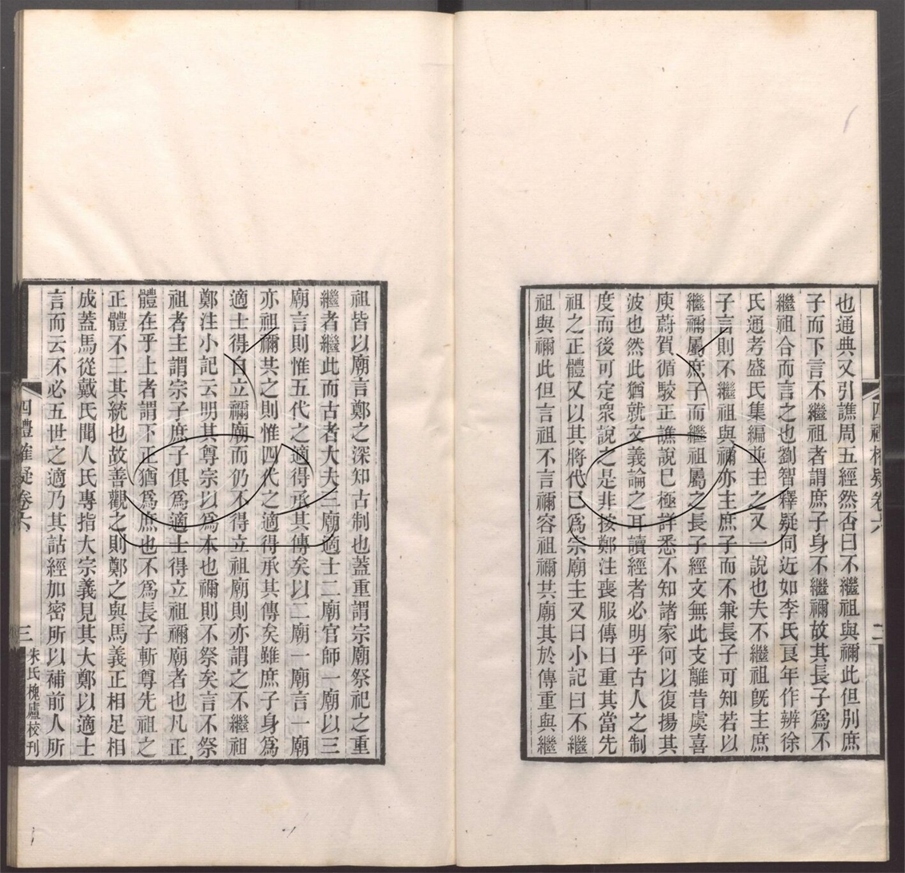 也通典又引譙周五經然否曰不繼祖與禰此但別庶
子而下言不繼祖者謂庶子身不繼禰故其長子爲不
繼祖合而言之也劉智釋疑同近如李氏良年作辨徐
氏通考盛氏集編並主之又一說也夫不繼祖旣主庶
子言則不繼祖與禰亦主庶子而不兼長子可知若以
繼禰屬庶子而繼祖屬之長子經文無此支離昔虞喜
庾蔚賀循駮正譙說已極詳悉不知諸家何以復揚其
波也然此猶就文義論之耳讀經者必明乎古人之制
度而後可定衆說之是非按鄭注喪服傳曰重其當先
祖之正體又以其將代已爲宗廟主又曰小記曰不繼
祖與禰此但言祖不言禰容祖禰共廟其於傳重與繼
四禮榷疑卷六
二
祖皆以廟言鄭之深知古制也蓋重謂宗廟祭祀之重
繼者繼此而古者大夫三廟適士二廟官師一廟以三
廟言則惟五代之適得承其傳矣以二廟一廟言一廟
亦祖禰共之則惟四代之適得承其傳矣雖庶子身爲
適士得自立禰廟而仍不得立祖廟則亦謂之不繼祖
鄭注小記云明其尊宗以爲本也禰則不祭矣言不祭
祖者主謂宗子庶子俱爲適士得立祖禰廟者也凡正
體在乎上者謂下正猶爲庶也不爲長子斬尊先祖之
正體不二其統也故善觀之則鄭之與馬義正相足相
成蓋馬從戴氏聞人氏專指大宗義見其大鄭以適士
言而云不必五世之適乃其詁經加密所以補前人所
四禮榷疑卷六
三
朱氏槐廬校刊